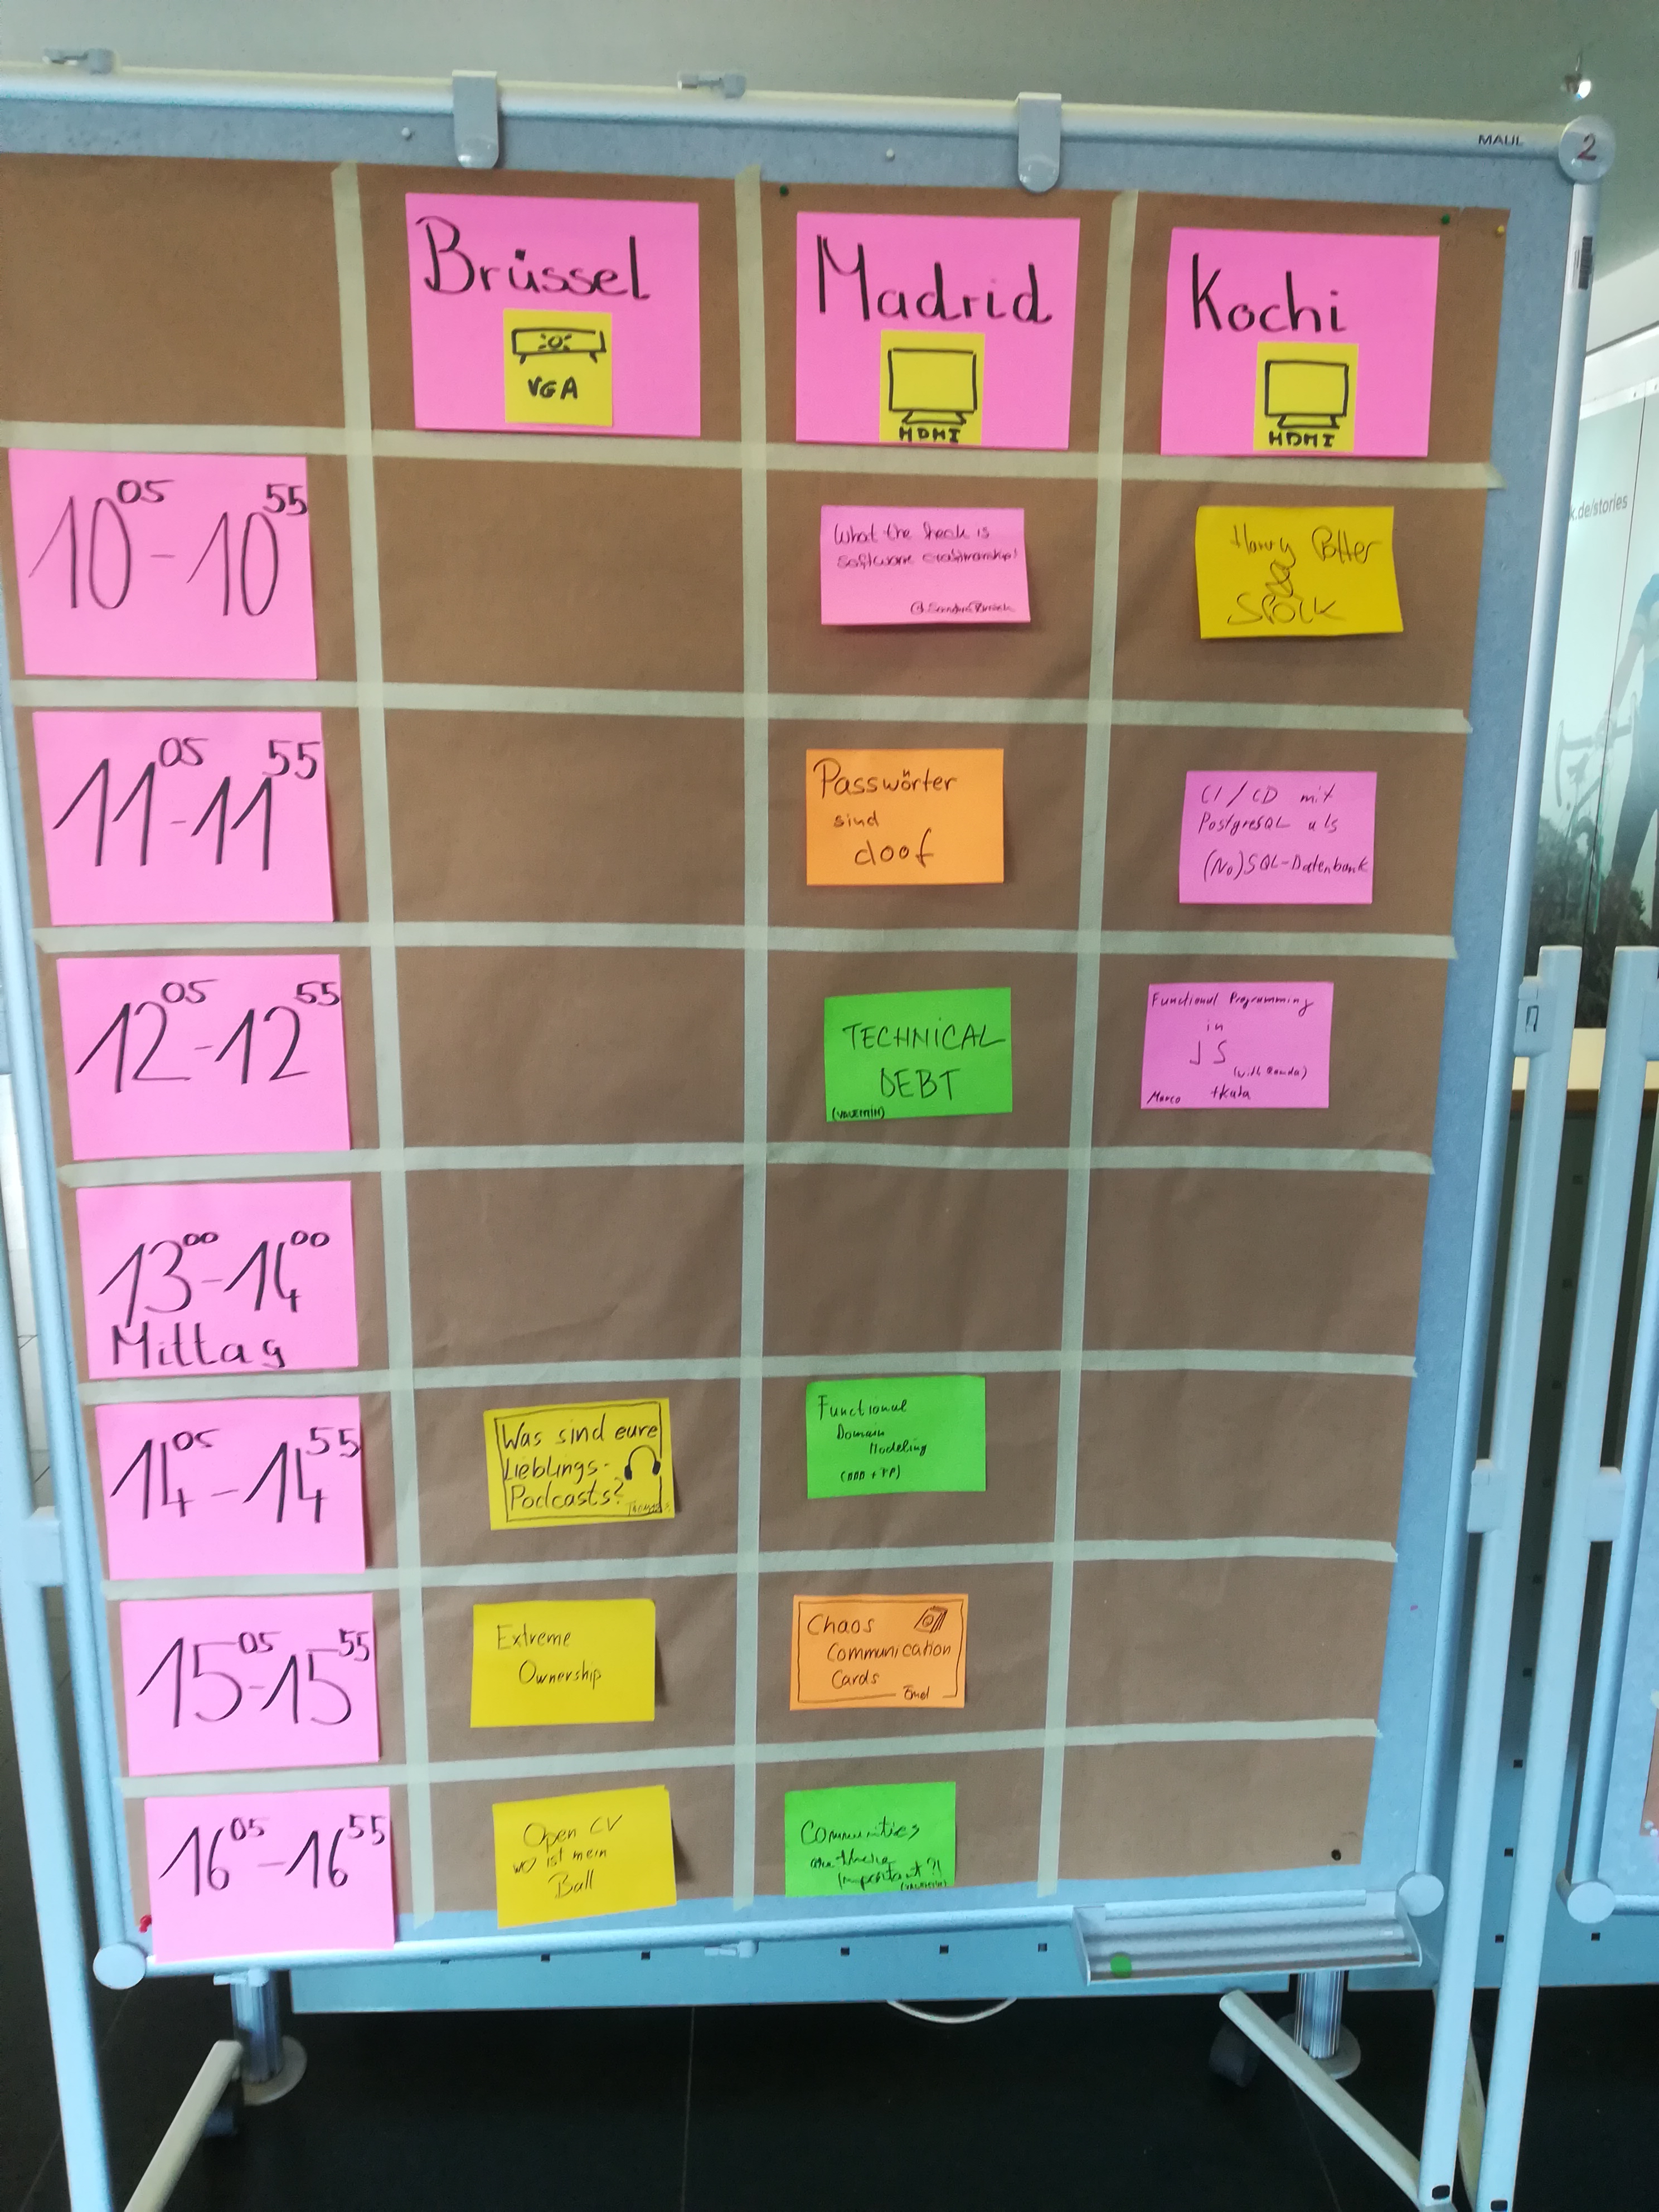 MAUL
2
Brüssel
VGA
Madrid
HDMI
Kochi
HDMI
k.de/stories
10 05 - 10 55
What the heck is
software craftmanship?
Harry Potter
&
Spock
11 05 - 11 55
Passwörter
sind
doof
CI/CD mit
PostgreSQL als
(No)SQL-Datenbank
12 05 - 12 55
TECHNICAL
DEBT
(VALENTIN)
Functional Programming
in
JS
(with Ramda)
Marco +Kata
13 00 - 14 00
Mittag
14 05 - 14 55
Was sind eure
Lieblings-
Podcasts?
Functional
Domain
Modeling
(DDD + FP)
15 05 - 15 55
Extreme
Ownership
Chaos
Communication
Cards
16 05 - 16 55
Open CV
wo ist mein
Ball
Communities
are there
important?!
(VALENTIN)